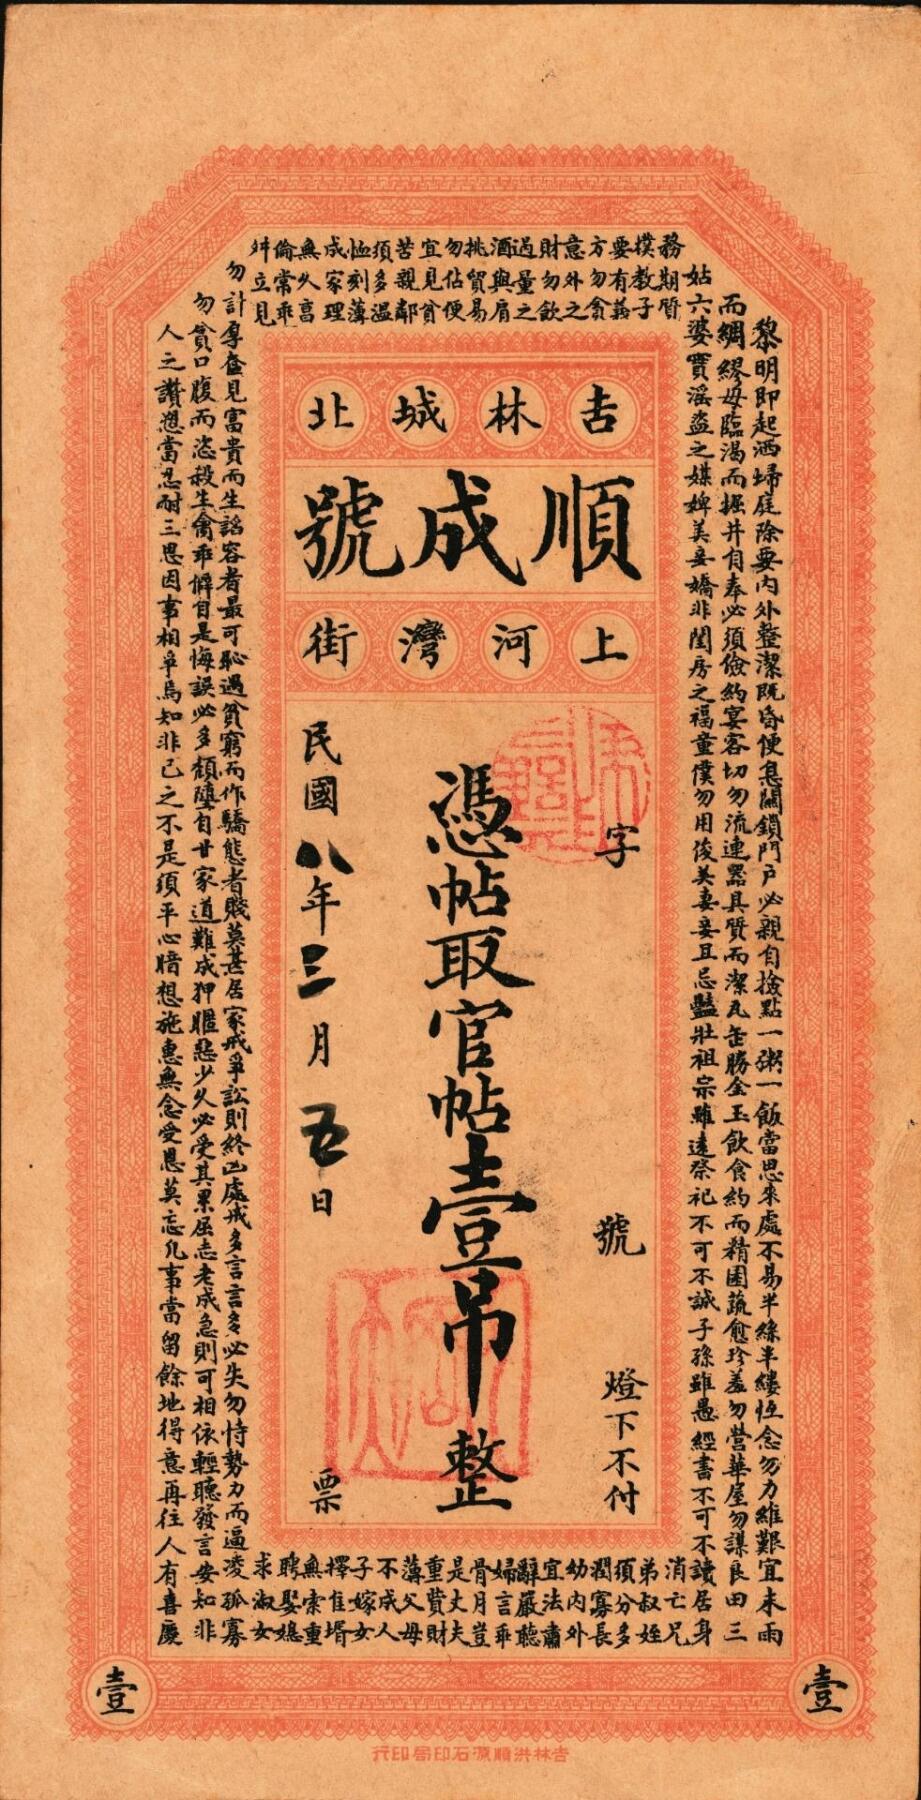 黎明即起洒埽庭除要内外整潔既昏便息關鎖門户必親自撿點一粥一飯當思來處不易半絲半縷恆念勿力維艱宜未雨
而綢繆毋臨渴而掘井自奉必須儉約宴客切勿流連器具質而潔瓦缶勝金玉飲食約而精園蔬愈珍羞勿營華屋勿謀良田三
姑六婆實淫盜之媒婢美妾嬌非閨房之福童僕勿用俊美妻妾且忌豔壯祖宗雖遠祭祀不可不誠子孫雖愚經書不可不讀居身
務期質
樸教子
要有義
方勿貪
意外之
財勿飲
過量之
酒與肩
挑貿易
勿佔便
宜見貧
苦親鄰
須多温
恤刻薄
成家理
無久享
倫常乖
舛立見
消亡兄
弟叔姪
須分多
潤寡長
幼内外
宜法肅
辭嚴聽
婦言乖
骨月豈
是丈夫
重貲財
薄父母
不成人
子嫁女
擇佳壻
無索重
聘娶媳
求淑女
勿計厚奩見富貴而生諂容者最可恥遇貧窮而作驕態者賤莫甚居家戒爭訟則終凶處戒多言言多必失勿恃勢力而逼凌孤寡
勿貪口腹而恣殺生禽乖僻自是悔誤必多頹墮自甘家道難成狎暱惡少久必受其累屈志老成急則可相依輕聽發言安知非
人之讚愬當忍耐三思因事相爭焉知非己之不是須平心暗想施惠無念受恩莫忘凡事當留餘地得意再往人有喜慶
吉林城北
順成號
上河灣街
字 號 燈下不付
憑帖取官帖壹吊整
民國八年三月五日 票
壹
壹
吉林洪順源石印局印行